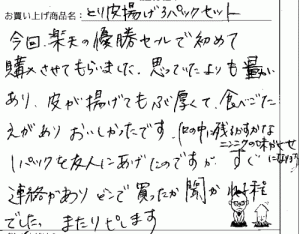 お買い上げ商品名：とり皮揚げ3パックセット
今回、楽天の優勝セールで初めて
購入させてもらいました。思っていたよりも量が
あり、皮が揚げてもぶ厚くて、食べごた
えがあり おいしかったです。口の中に残るかすかな
ニンニクの味がくせになります
1パックを友人にあげたのですが、すぐ
連絡があり どこで買ったか聞かれた程
でした。またリピします